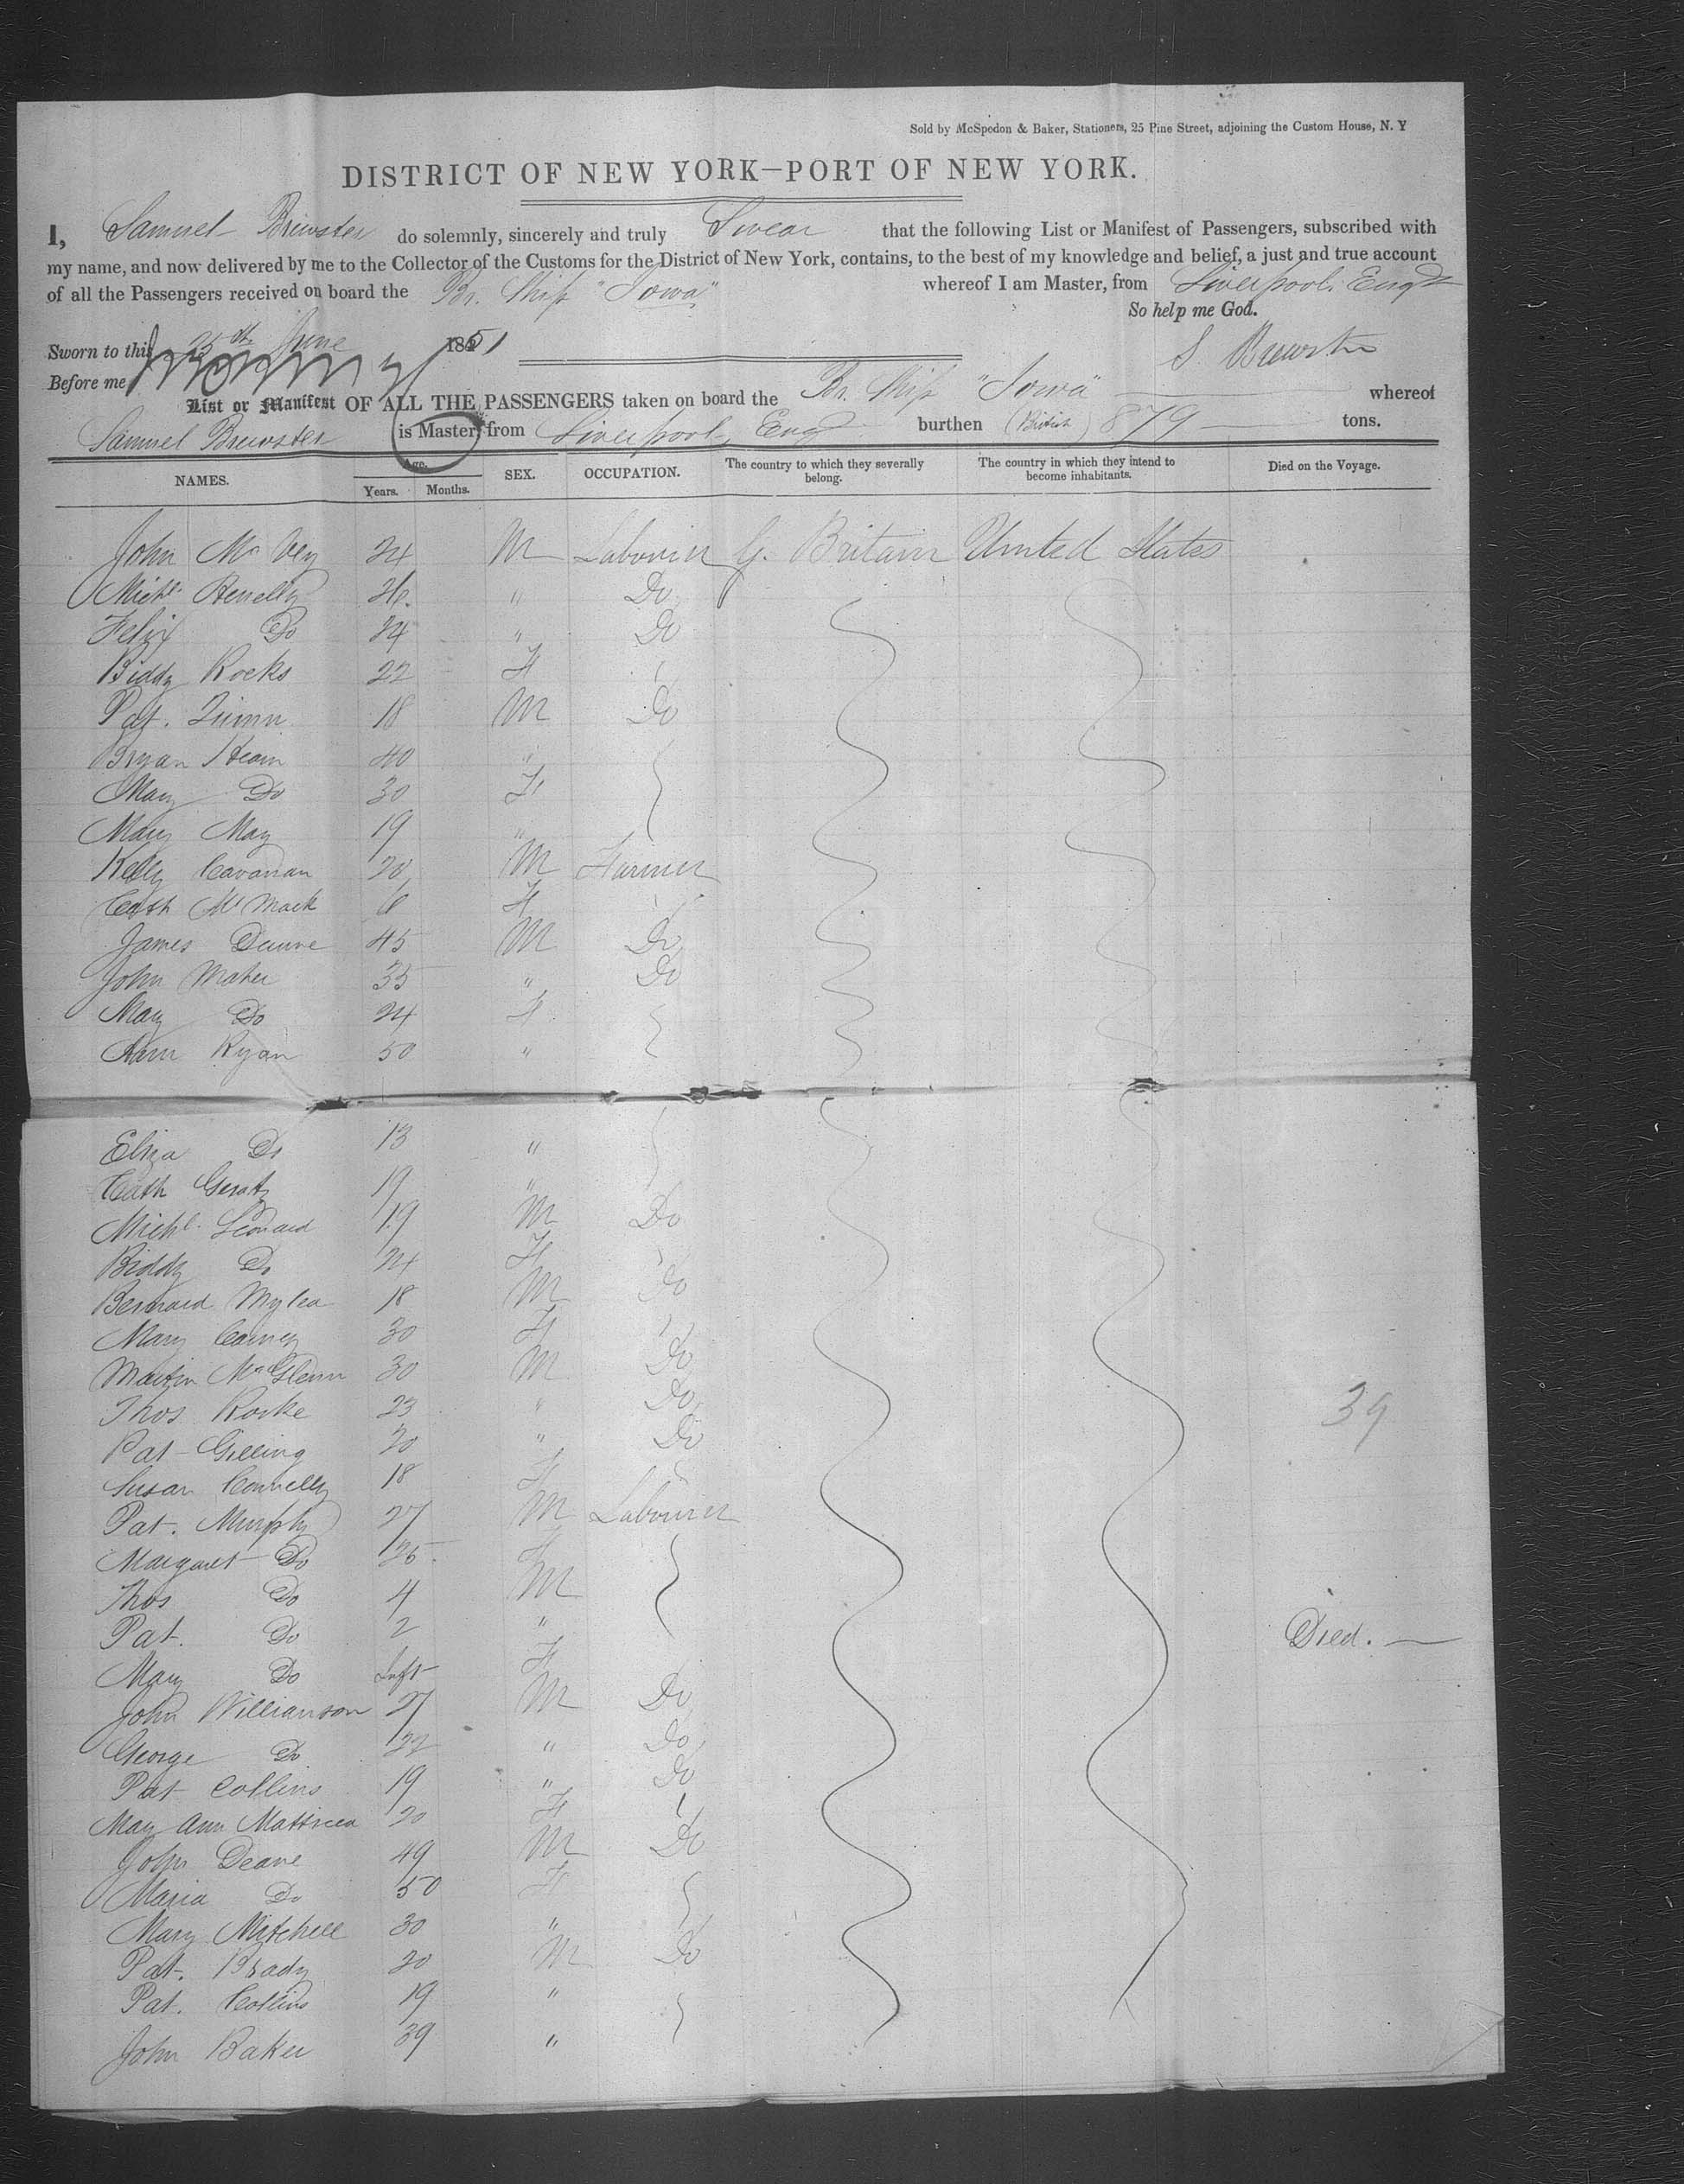 Sold by McSpedon & Baker, Stationers, 25 Pine Street, adjoining the Custom House, N. Y
DISTRICT OF NEW YORK—PORT OF NEW YORK.
I, Samuel Brewster do solemnly, sincerely and truly Swear that the following List or Manifest of Passengers, subscribed with
my name, and now delivered by me to the Collector of the Customs for the District of New York, contains, to the best of my knowledge and belief, a just and true account
of all the Passengers received on board the Br. Ship "Iowa" whereof I am Master, from Liverpool, Engd
So help me God.
Sworn to this 25th June 1851
S. Brewster
Before me
List or Manifest OF ALL THE PASSENGERS taken on board the Br. Ship "Iowa" whereof
Samuel Brewster is Master, from Liverpool, Eng burthen (British) 879 tons.
NAMES. Age. Years. Months. SEX. OCCUPATION. The country to which they severally belong. The country in which they intend to become inhabitants. Died on the Voyage.
John Mc Vey 24 M Labourer G. Britain United States
Michl. 26. " Do
Felix Do 24 " Do
Biddy Rocks 22 F
Pat. Quinn 18 M Do
Bryan 40 "
Mary Do 30 F
Mary May 19 "
Kelly Cavanan 20 M Farmer
Cath Mc Mack 6 F
James Deane 45 M Do
John Maher 35 " Do
Mary Do 24 F
Ann Ryan 50 "
Eliza Do 13 "
Cath 19 "
Michl. Leonard 19 M Do
Biddy Do 24 F
Bernard 18 M Do
Mary Carney 30 F
Martin McGlenn 30 M Do
Thos. Rorke 23 " Do
39
Pat Gilling 20 " Do
Susan Connelly 18 F
Pat. Murphy 27 M Labourer
Margaret Do 25. F
Thos Do 4 M
Pat. Do 2 " Died.
Mary Do Inft F
John Williamson 27 M Do
George Do 22 " Do
Pat Collins 19 " Do
May Ann 20 F
John Deane 49 M Do
Maria Do 50 F
Mary Mitchell 30 "
Pat. Brady 20 M Do
Pat. Collins 19 "
John Baker 39 "